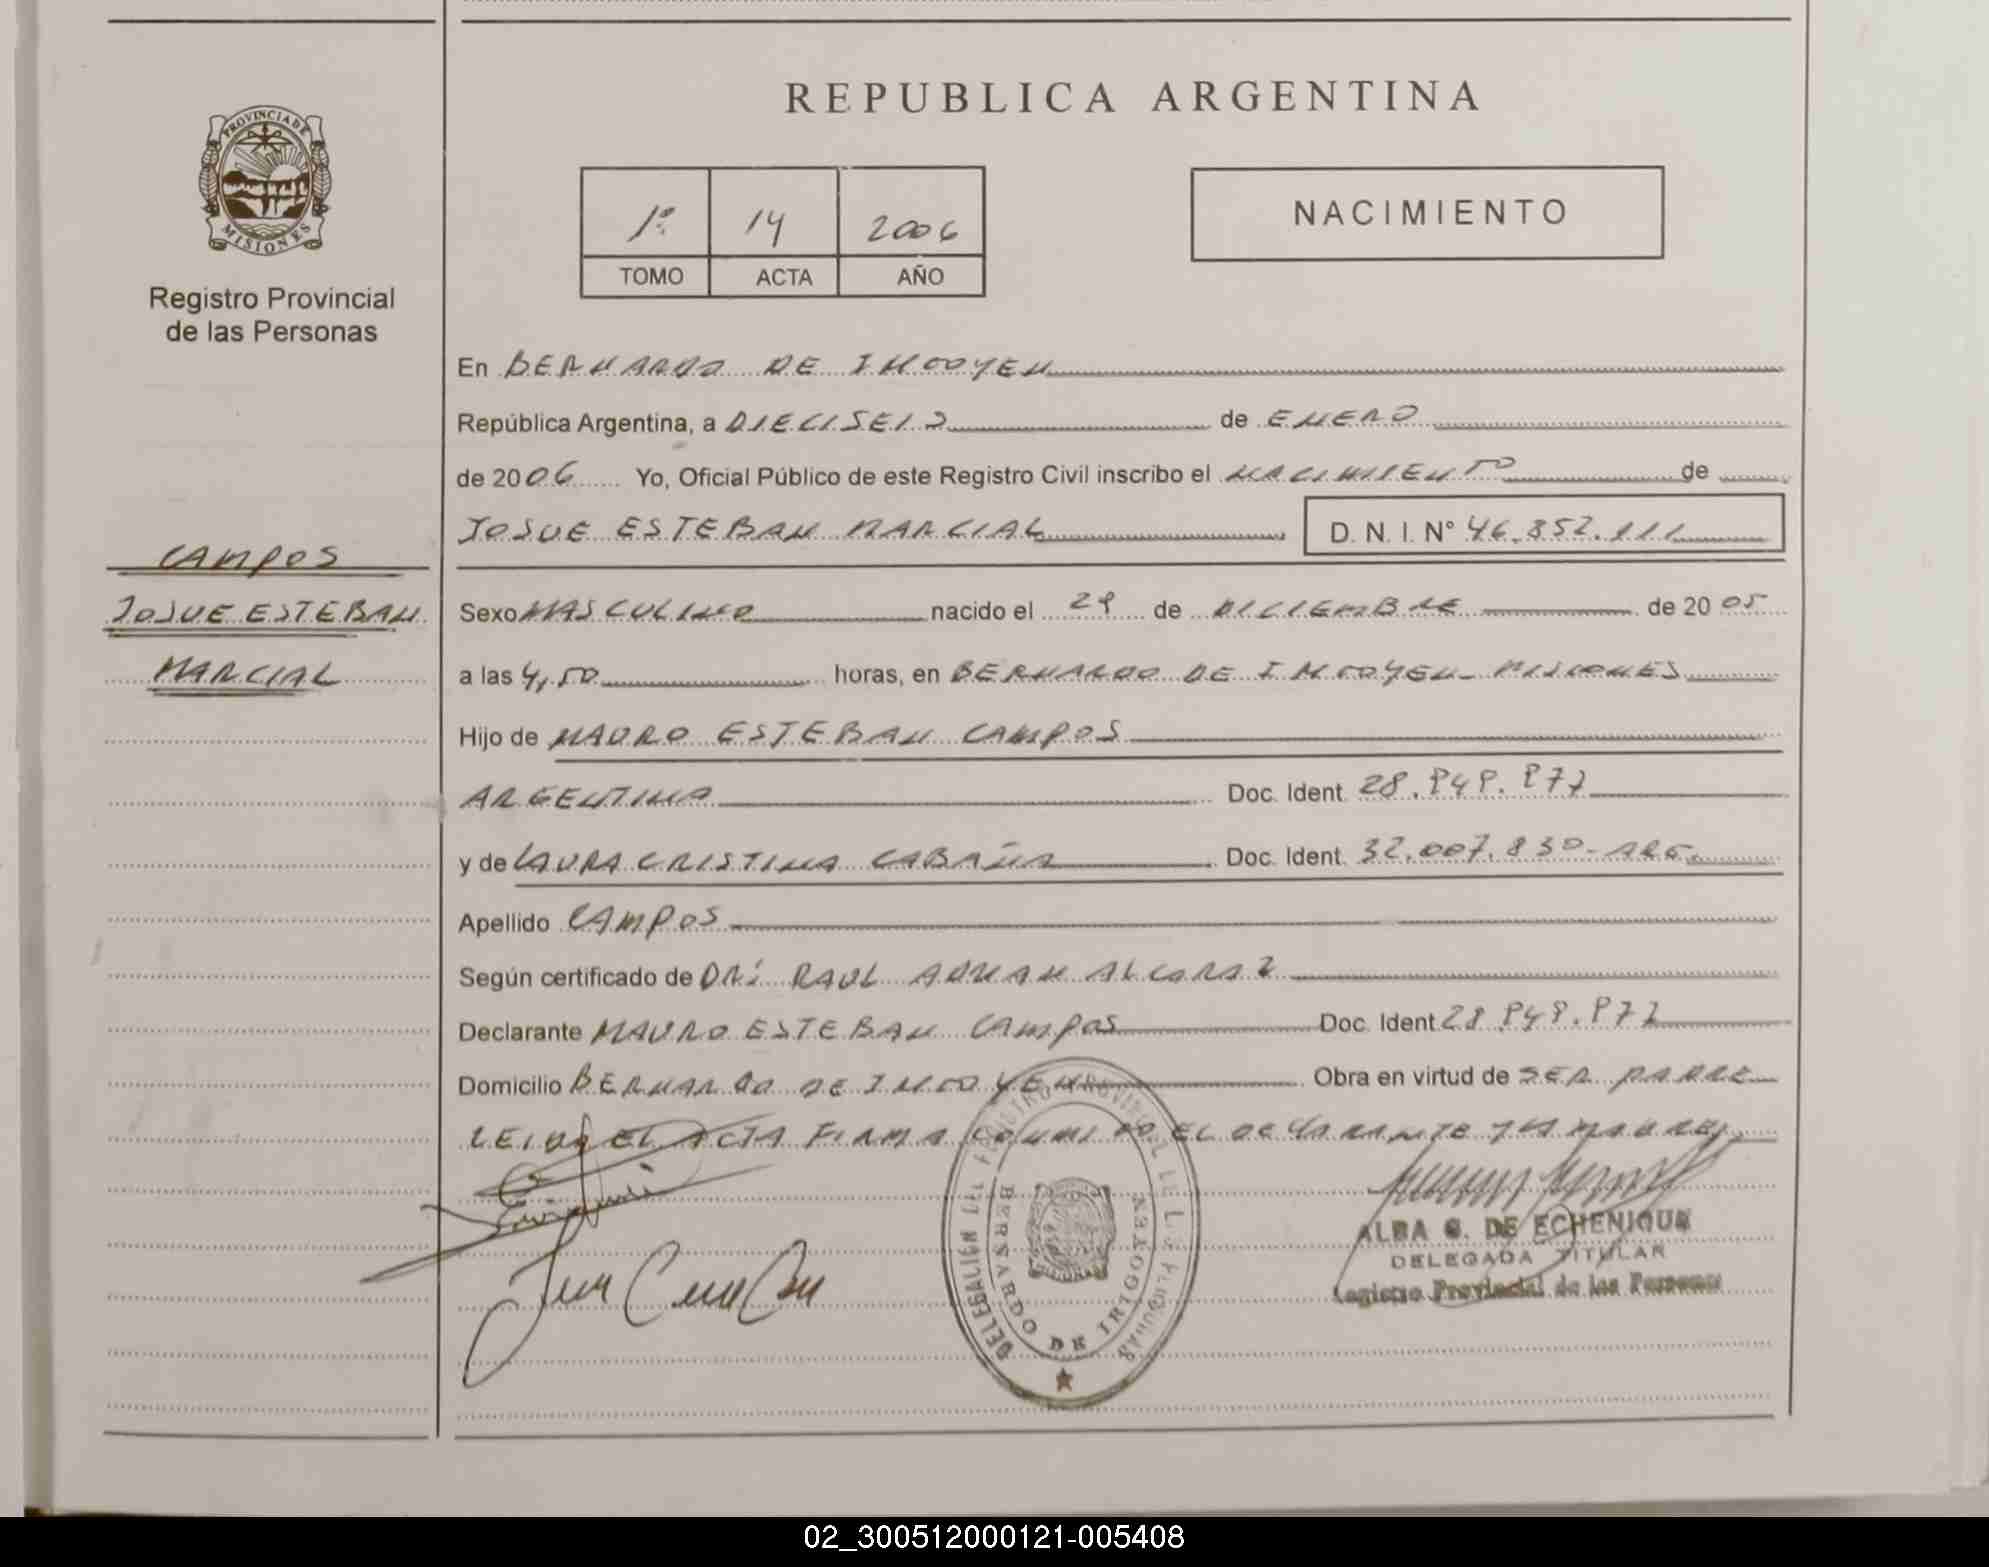 REPUBLICA ARGENTINA
PROVINCIA DE
MISIONES
Registro Provincial
de las Personas
1º 14 2006
TOMO ACTA AÑO
NACIMIENTO
En BERNARDO DE IRIGOYEN
República Argentina, a DIECISEIS de ENERO
de 2006 Yo, Oficial Público de este Registro Civil inscribo el NACIMIENTO de
JOSUE ESTEBAN MARCIAL D. N. I. Nº 46.352.111
CAMPOS
JOSUE ESTEBAN
MARCIAL
Sexo MASCULINO nacido el 29 de DICIEMBRE de 2005
a las 4,50 horas, en BERNARDO DE IRIGOYEN - MISIONES
Hijo de MAURO ESTEBAN CAMPOS
ARGENTINA Doc. Ident.
y de LAURA CRISTINA CABAÑA Doc. Ident. 32.007.830- ARG.
Apellido CAMPOS
Según certificado de DR: RAUL ADRIAN ALCARAZ
Declarante MAURO ESTEBAN CAMPOS Doc. Ident
Domicilio BERNARDO DE IRIGOYEN Obra en virtud de SER PADRE
LEIDA EL ACTA FIRMA CONMIGO EL DECLARANTE Y LA MADRE
BERNARDO DE IRIGOYEN
ALBA G. DE ECHENIQUE
DELEGADA TITULAR
Registro Provincial de las Personas
02_300512000121-005408